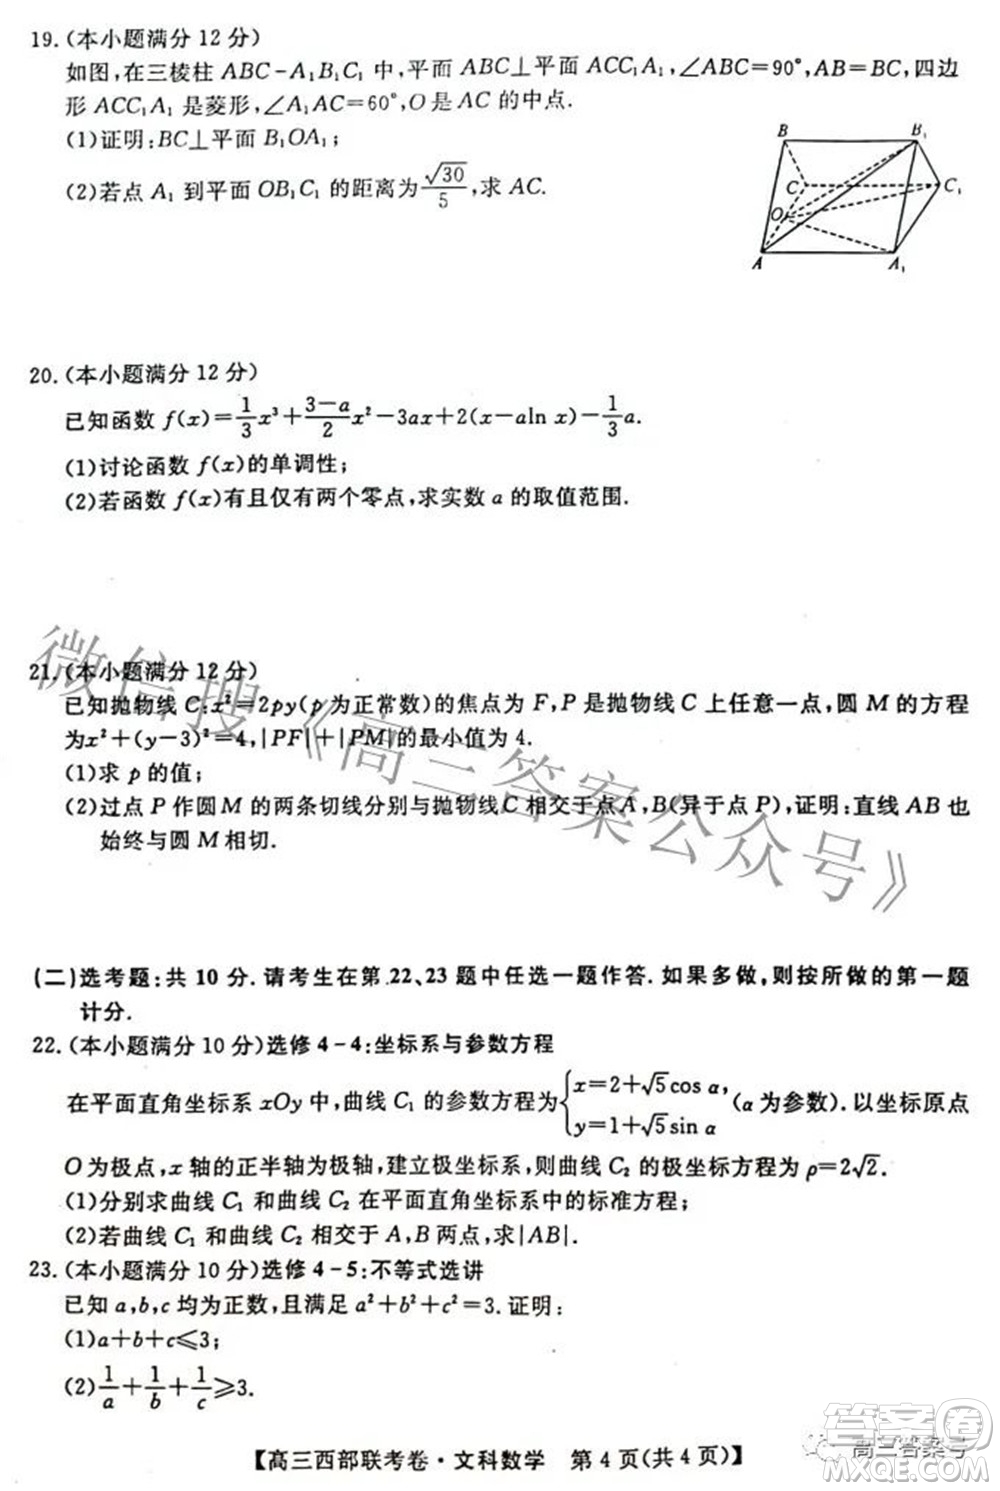 19.(本小题满分 12 分)
如图,在三棱柱 ABC-A₁B₁C₁ 中,平面 ABC⊥平面 ACC₁A₁,∠ABC=90°,AB=BC,四边
形 ACC₁A₁ 是菱形,∠A₁AC=60°,O 是 AC 的中点.
(1)证明:BC⊥平面 B₁OA₁;
(2)若点 A₁ 到平面 OB₁C₁ 的距离为√30/5,求 AC.
B B₁
C C₁
O
A A₁
20.(本小题满分 12 分)
已知函数 f(x)=1/3x³+(3-a)/2x²-3ax+2(x-aln x)-1/3a.
(1)讨论函数 f(x)的单调性;
(2)若函数 f(x)有且仅有两个零点,求实数 a 的取值范围.
21.(本小题满分 12 分)
已知抛物线 C:x²=2py(p 为正常数)的焦点为 F,P 是抛物线 C 上任意一点,圆 M 的方程
为x²+(y-3)²=4,|PF|+|PM|的最小值为 4.
(1)求 p 的值;
(2)过点 P 作圆 M 的两条切线分别与抛物线C 相交于点 A,B(异于点 P),证明:直线 AB 也
始终与圆 M 相切.
微信搜《高三答案公众号》
(二)选考题:共 10 分.请考生在第 22、23 题中任选一题作答.如果多做,则按所做的第一题
计分.
22.(本小题满分 10 分)选修 4-4:坐标系与参数方程
在平面直角坐标系 xOy 中,曲线 C₁ 的参数方程为{x=2+√5cos α, y=1+√5sin α (α 为参数).以坐标原点
O为极点,x 轴的正半轴为极轴,建立极坐标系,则曲线 C₂ 的极坐标方程为 ρ=2√2.
(1)分别求曲线 C₁ 和曲线 C₂ 在平面直角坐标系中的标准方程;
(2)若曲线 C₁ 和曲线 C₂ 相交于 A,B 两点,求|AB|.
23.(本小题满分 10 分)选修 4-5:不等式选讲
已知 a,b,c 均为正数,且满足 a²+b²+c²=3.证明:
(1)a+b+c⩽3;
(2)1/a+1/b+1/c⩾3.
【高三西部联考卷·文科数学 第 4 页(共 4 页)】
高三答案号
答案圈
MXQE.COM